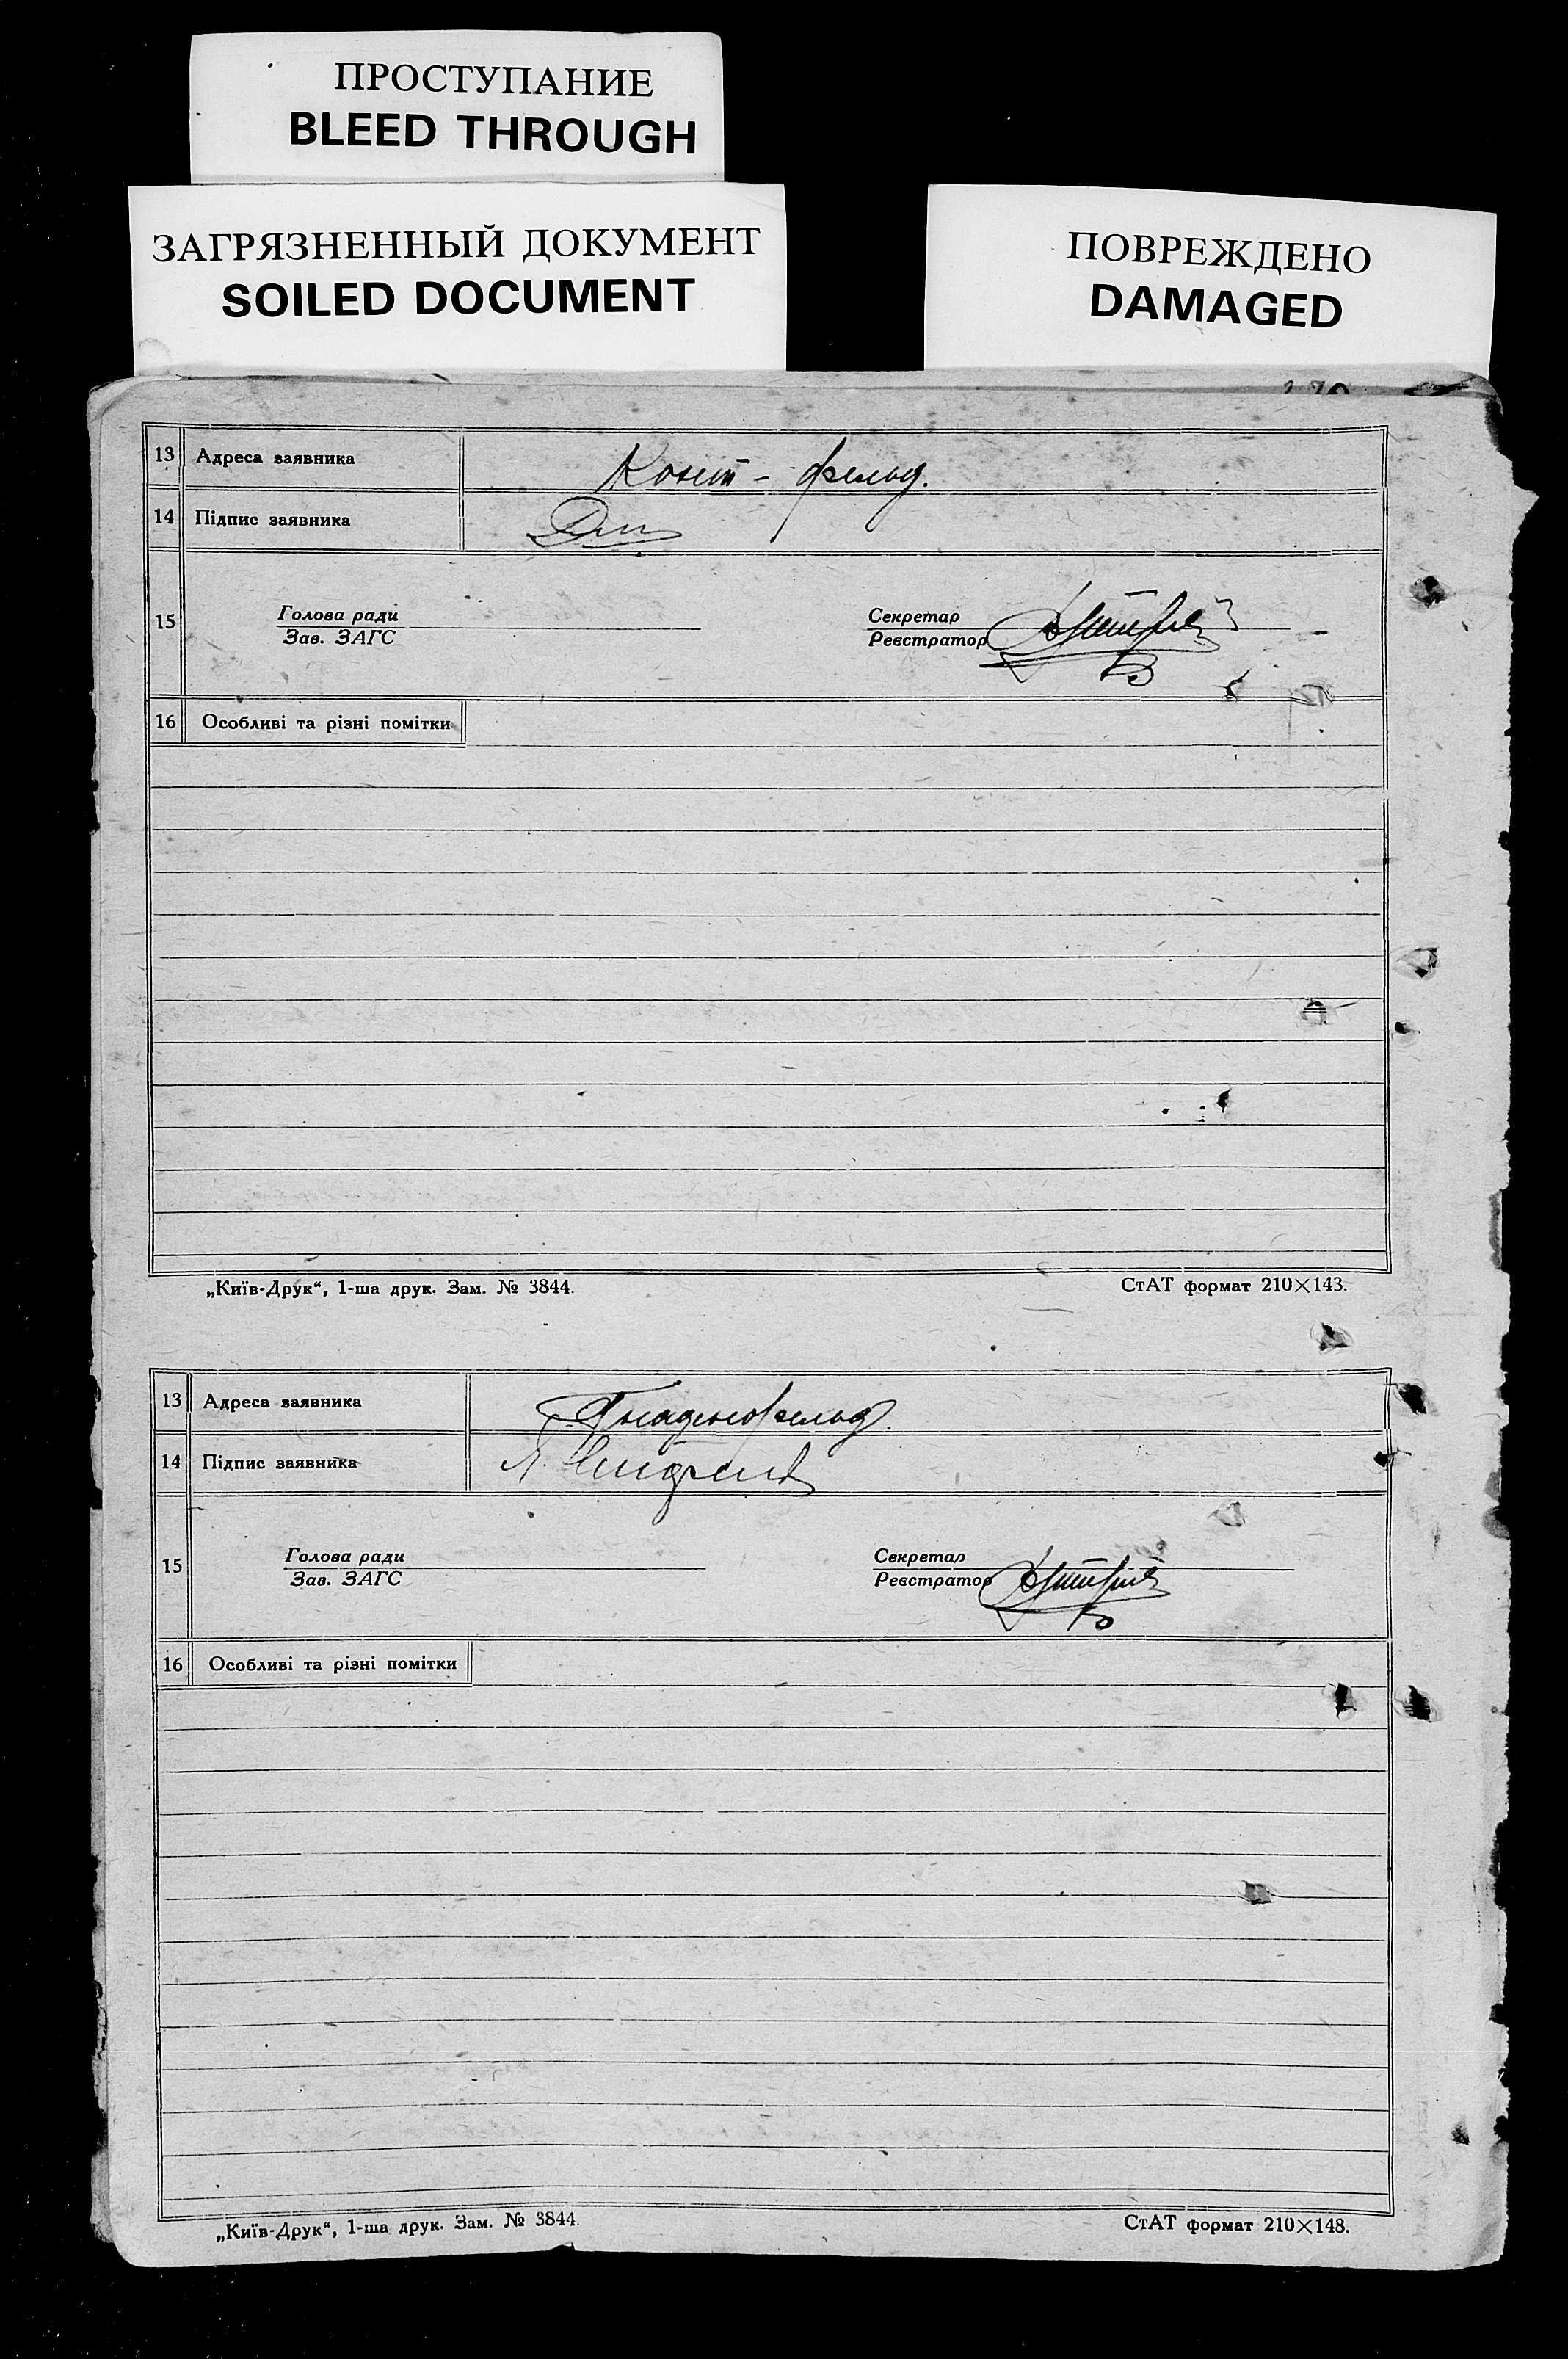 ПРОСТУПАНИЕ
BLEED THROUGH
ЗАГРЯЗНЕННЫЙ ДОКУМЕНТ
SOILED DOCUMENT
ПОВРЕЖДЕНО
DAMAGED
13 Адреса заявника фельд.
14 Підпис заявника
15 Голова ради Секретар
Зав. ЗАГС Реєстратор
16 Особливі та різні помітки
„Київ-Друк“, 1-ша друк. Зам. № 3844. СтАТ формат 210×143.
13 Адреса заявника Гнаденфельд.
14 Підпис заявника
15 Голова ради Секретар
Зав. ЗАГС Реєстратор
16 Особливі та різні помітки
„Київ-Друк“, 1-ша друк. Зам. № 3844. СтАТ формат 210×148.